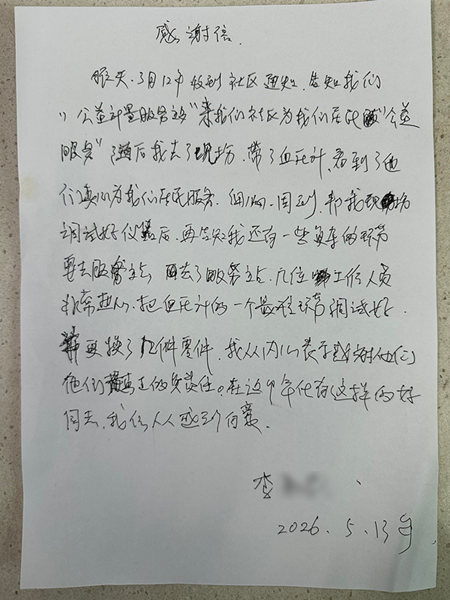 感谢信.
昨天.5月12日收到社区通知.告知我们
"公益计量服务站"来我们社区为我们居民"公益
服务"了随后我去了现场,带了血压计,看到了他
们真心为我们居民服务.细心周到,帮我现场
调试好仪器后.再告知我还有一些复杂的环节
要去服务站,我去了服务站.几位工作人员
非常热心,把血压计的一个最难环节调试好.
并更换了几件零件.我从内心表示感谢他们
他们真正的负责任。在这个年代有这样的好
同志.我们人人感到自豪.
李
2026.5.13号